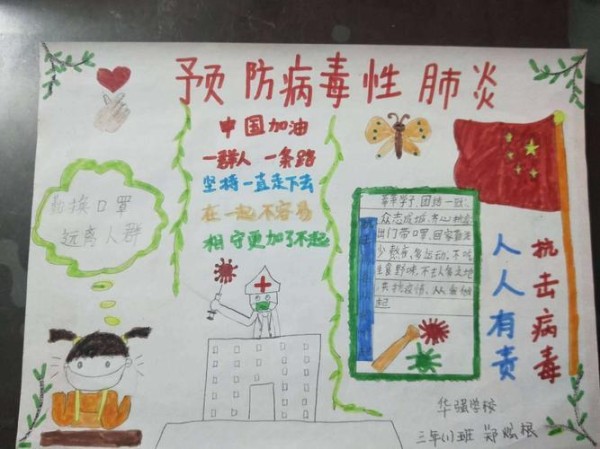 预防病毒性肺炎
中国加油
一群人 一条路
坚持一直走下去
在一起不容易
相守更加了不起
勤换口罩
远离人群
莘莘学子,团结一致,
众志成城,齐心
出门带口罩,回家
少熬夜,多运动,不吃
食野味,不去人多之地
共抗疫情,从
起
抗击病毒
人人有责
华强学校
三年(1)班 郑 根